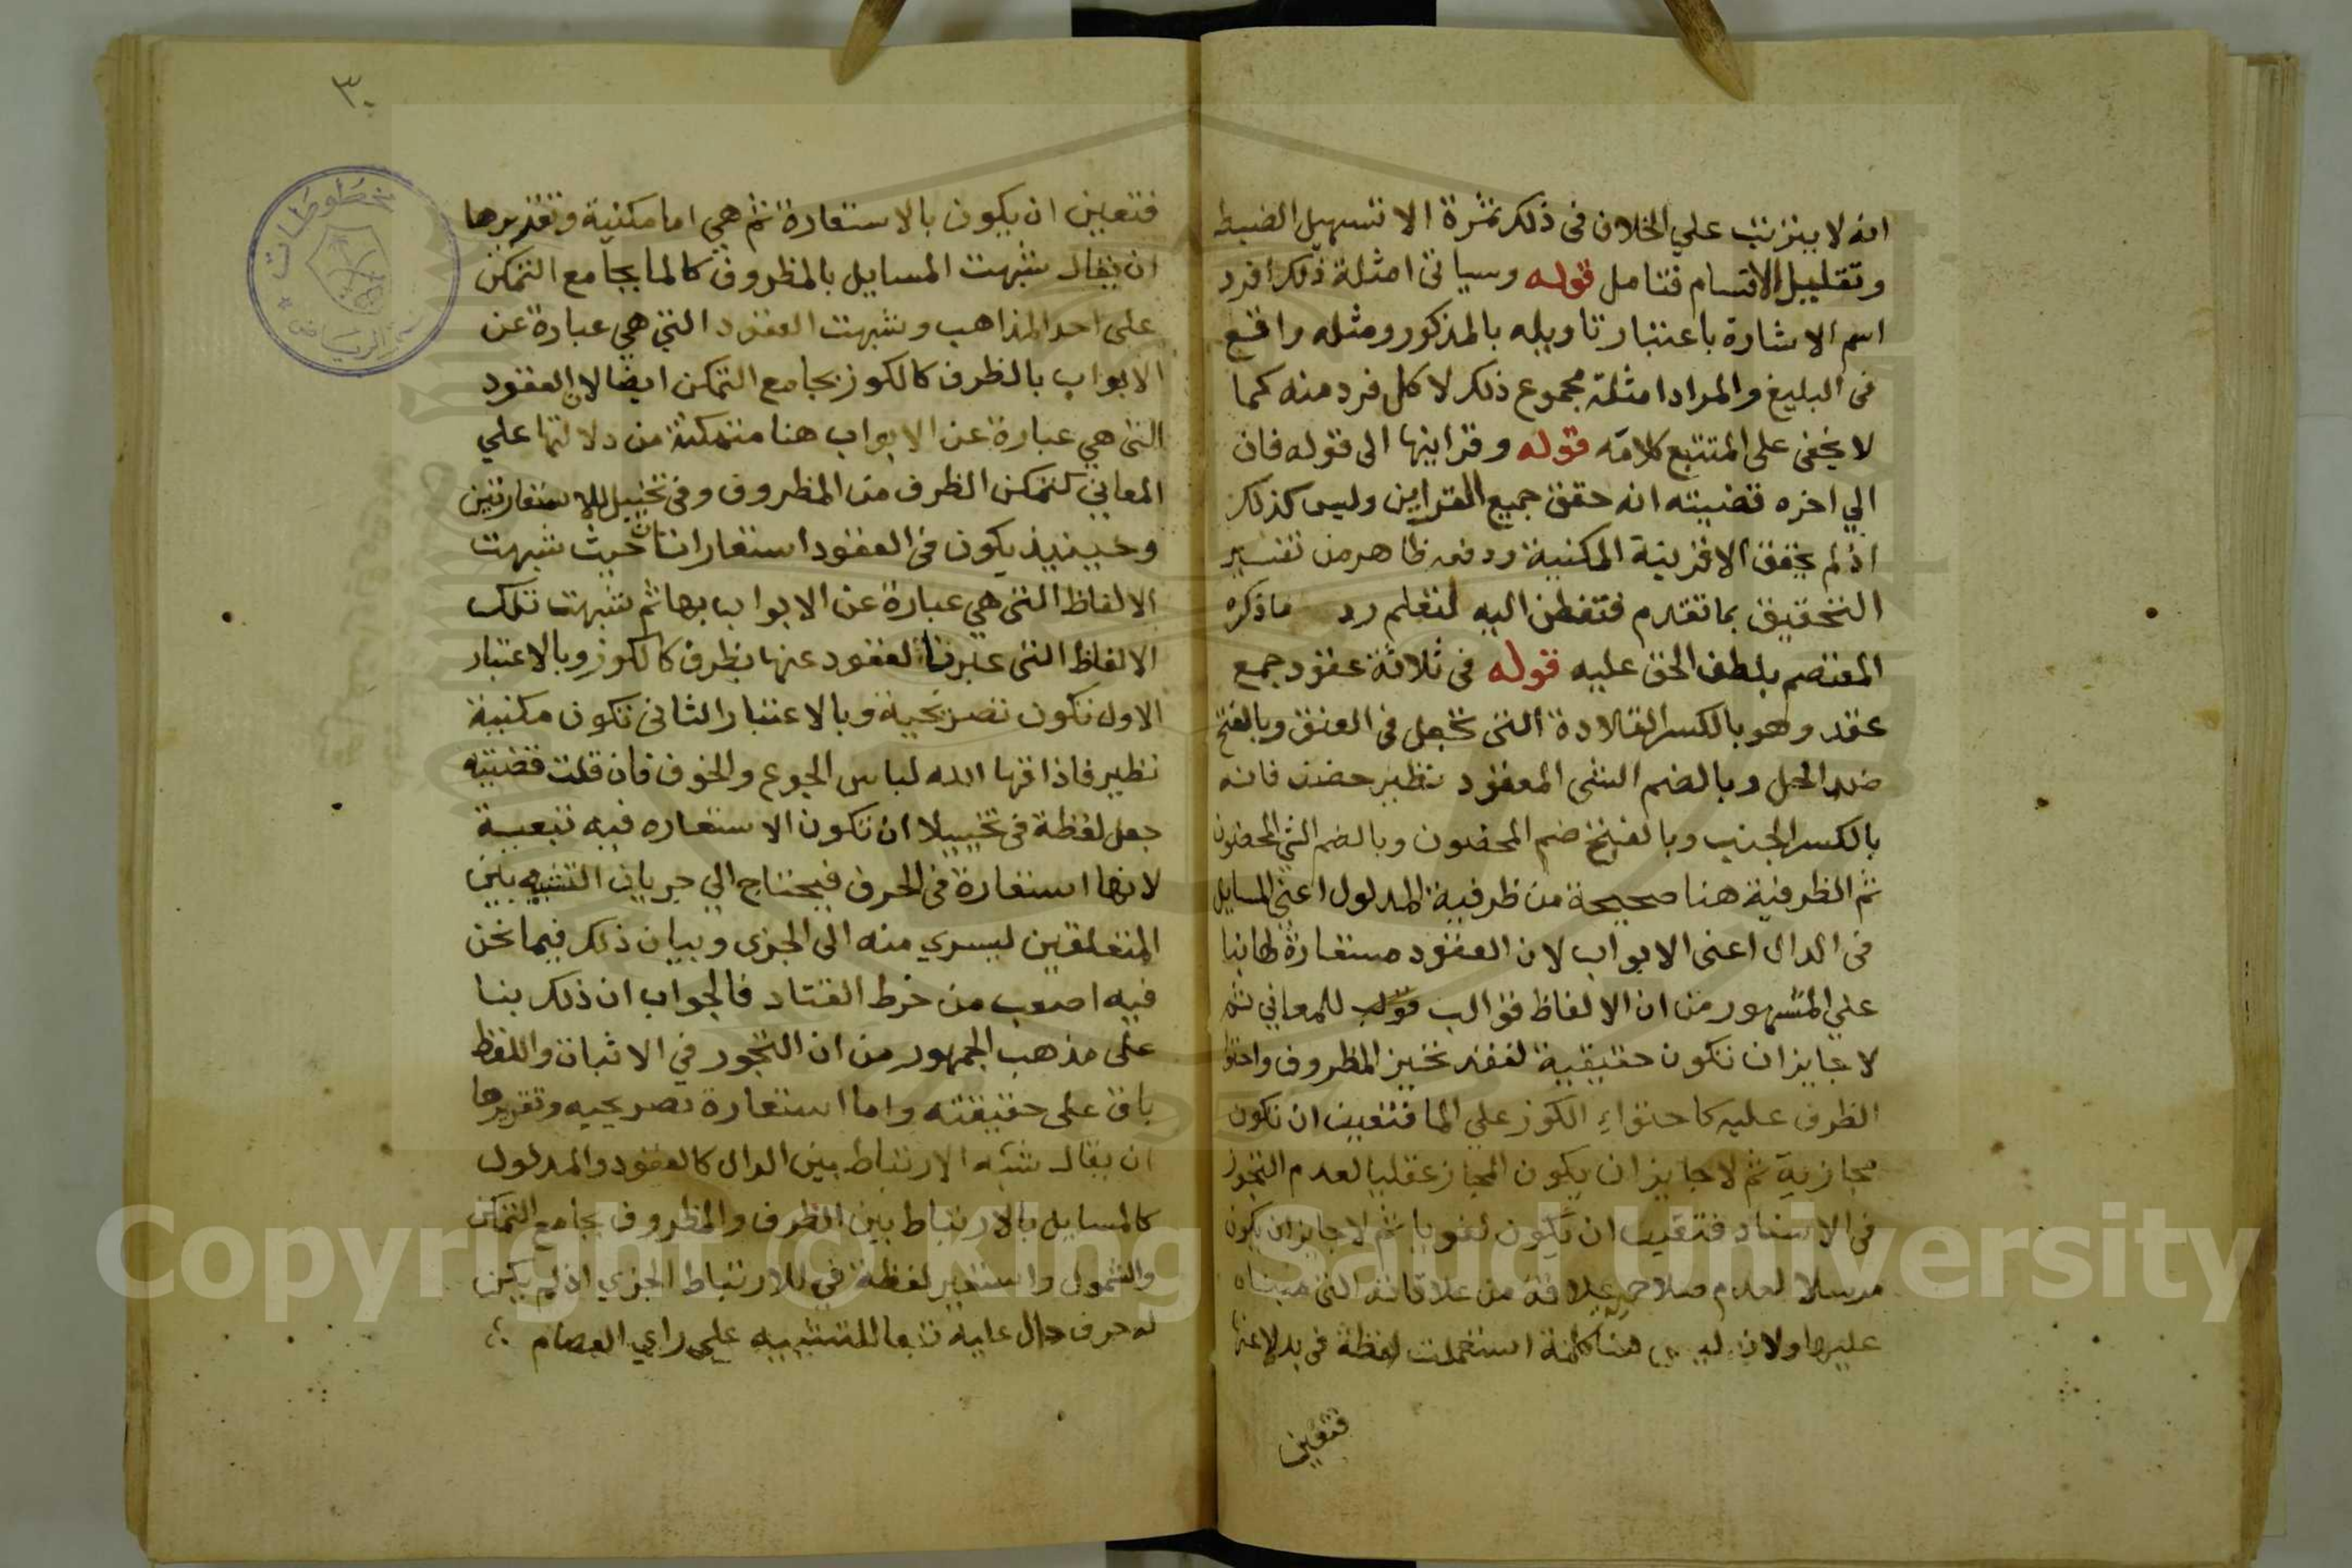 انه لا يترتب علي الخلاف فى ذلك ثمرة الا تسهيل الضبط
وتقليل الاقسام فتامل قوله وسياتى امثلة ذلك افرد
اسم الاشارة باعتبار تاويله بالمذكور ومثله واقع
فى البليغ والمراد امثلة مجموع ذلك لا كل فرد منه كما
لا يخفى على المتتبع كلامه قوله وقراينها الى قوله فان
الي اخره قضيته انه حقق جميع القراين وليس كذلك
اذ لم يحقق الا قرينة المكنية ودفعه ظاهر من تفسير
التحقيق بما تقدم فتفطن اليه لتعلم رد ماذكره
المعتصم بلطف الحق عليه قوله فى ثلاثة عقود جمع
عقد وهو بالكسر القلادة التى تجعل فى العنق وبالفتح
ضد الحل وبالضم الشى المعقود نظير حضن فانه
بالكسر الجنب وبالفتح ضم المحضون وبالضم الشي المحضون
ثم الظرفية هنا صحيحة من ظرفية المدلول اعني المسايل
فى الدال اعنى الابواب لان العقود مستعارة لها بنا
علي المشهور من ان الالفاظ قوالب للمعاني ثم
لا جايز ان تكون حقيقية لفقد تحيز المظروف واحتوا
الظرف عليه كاحتواءِ الكوز علي الما فتعين ان تكون
مجازية ثم لا جايز ان يكون المجاز عقليا لعدم التجوز
فى الاسناد فتعين ان يكون لغويا ثم لا جايز ان يكون
مرسلا لعدم صلاحية علاقة من علاقاته التى مبناه
عليها ولان ليس هنا كلمة استعملت لفظة فى بدلا عنها
فتعين
٣٠
فتعين ان يكون بالاستعارة ثم هي اما مكنية وتقديرها
ان يقال شبهت المسايل بالمظروف كالما بجامع التمكن
على احد المذاهب وشبهت العقود التي هى عبارة عن
الابواب بالظرف كالكوز بجامع التمكن ايضا لان العقود
التى هي عبارة عن الابواب هنا متمكنة من دلالتها علي
المعاني كتمكن الظرف من المظروف وفى تخييل للاستعارتين
وحينيذ يكون فى العقود استعارتان حيث شبهت
الالفاظ التى هي عبارة عن الابواب بها ثم شبهت تلك
الالفاظ التى عبرنا بالعقود عنها بظرف كالكوز وبالاعتبار
الاول تكون تصريحية وبالاعتبار الثانى تكون مكنية
نظير فاذاقها الله لباس الجوع والخوف فان قلت قضيته
جعل لفظة فى تخييلا ان تكون الاستعاره فيه تبعية
لانها استعارة فى الحرف فيحتاج الي جريان التشبيه بين
المتعلقين ليسري منه الى الجزى وبيان ذلك فيما نحن
فيه اصعب من خرط القتاد فالجواب ان ذلك بنا
على مذهب الجمهور من ان التجوز في الاثبات واللفظ
باق على حقيقته واما استعارة تصريحيه وتقريرها
ان يقال شبه الارتباط بين الدال كالعقود والمدلول
كالمسايل بالارتباط بين الظرف والمظروف بجامع التمكن
والشمول واستعير لفظة في للارتباط الجزي اذ لم يكن
له حرف دال عليه تبعا للتشبيه علي راي العصام
مخطوطات
الرياض
Copyright © King Saud University